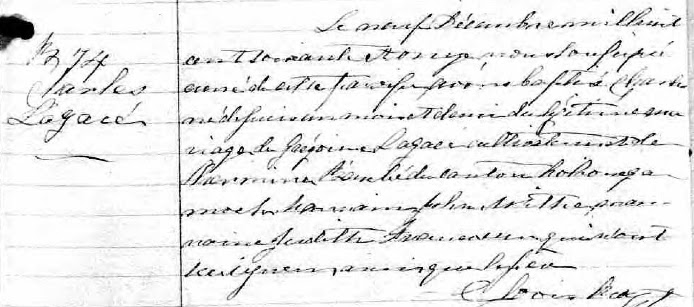 B 74
Charles
Lagacé
Le neuf Décembre mil huit
cent soixante et onze, nous soussigné
curé de cette paroisse avons baptisé Charles
né depuis un mois et demi du légitime ma
riage de Grégoire Lagacé cultivateur et de
du canton
parrain John mar
raine Judith qui n'ont
su signer, ainsi que le père